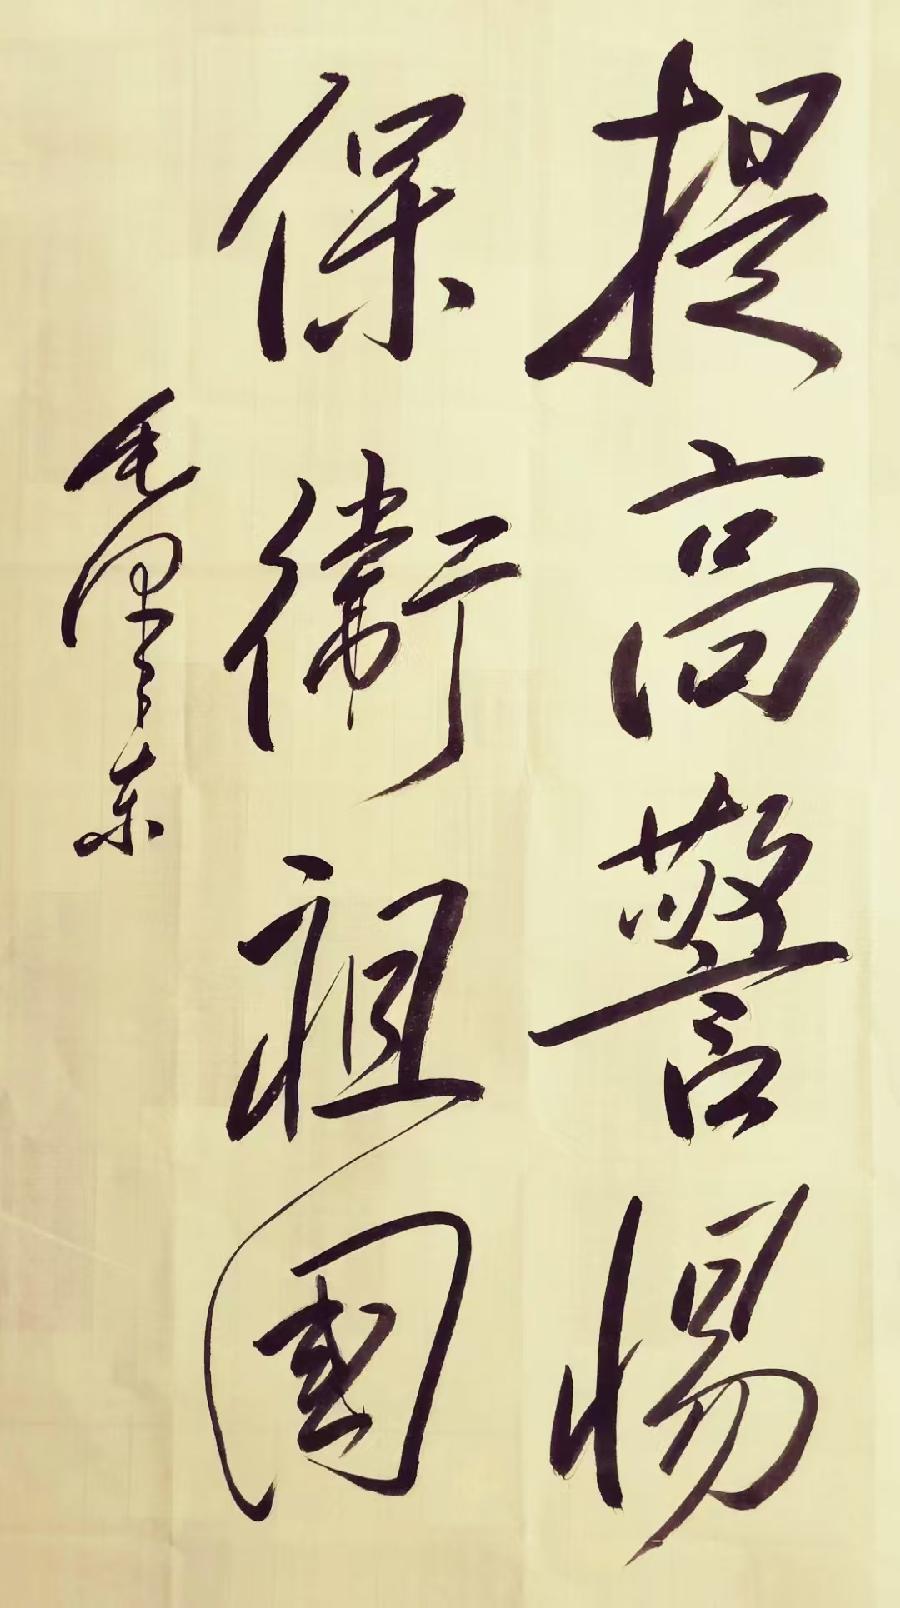 提高警惕
保衞祖國
毛泽东